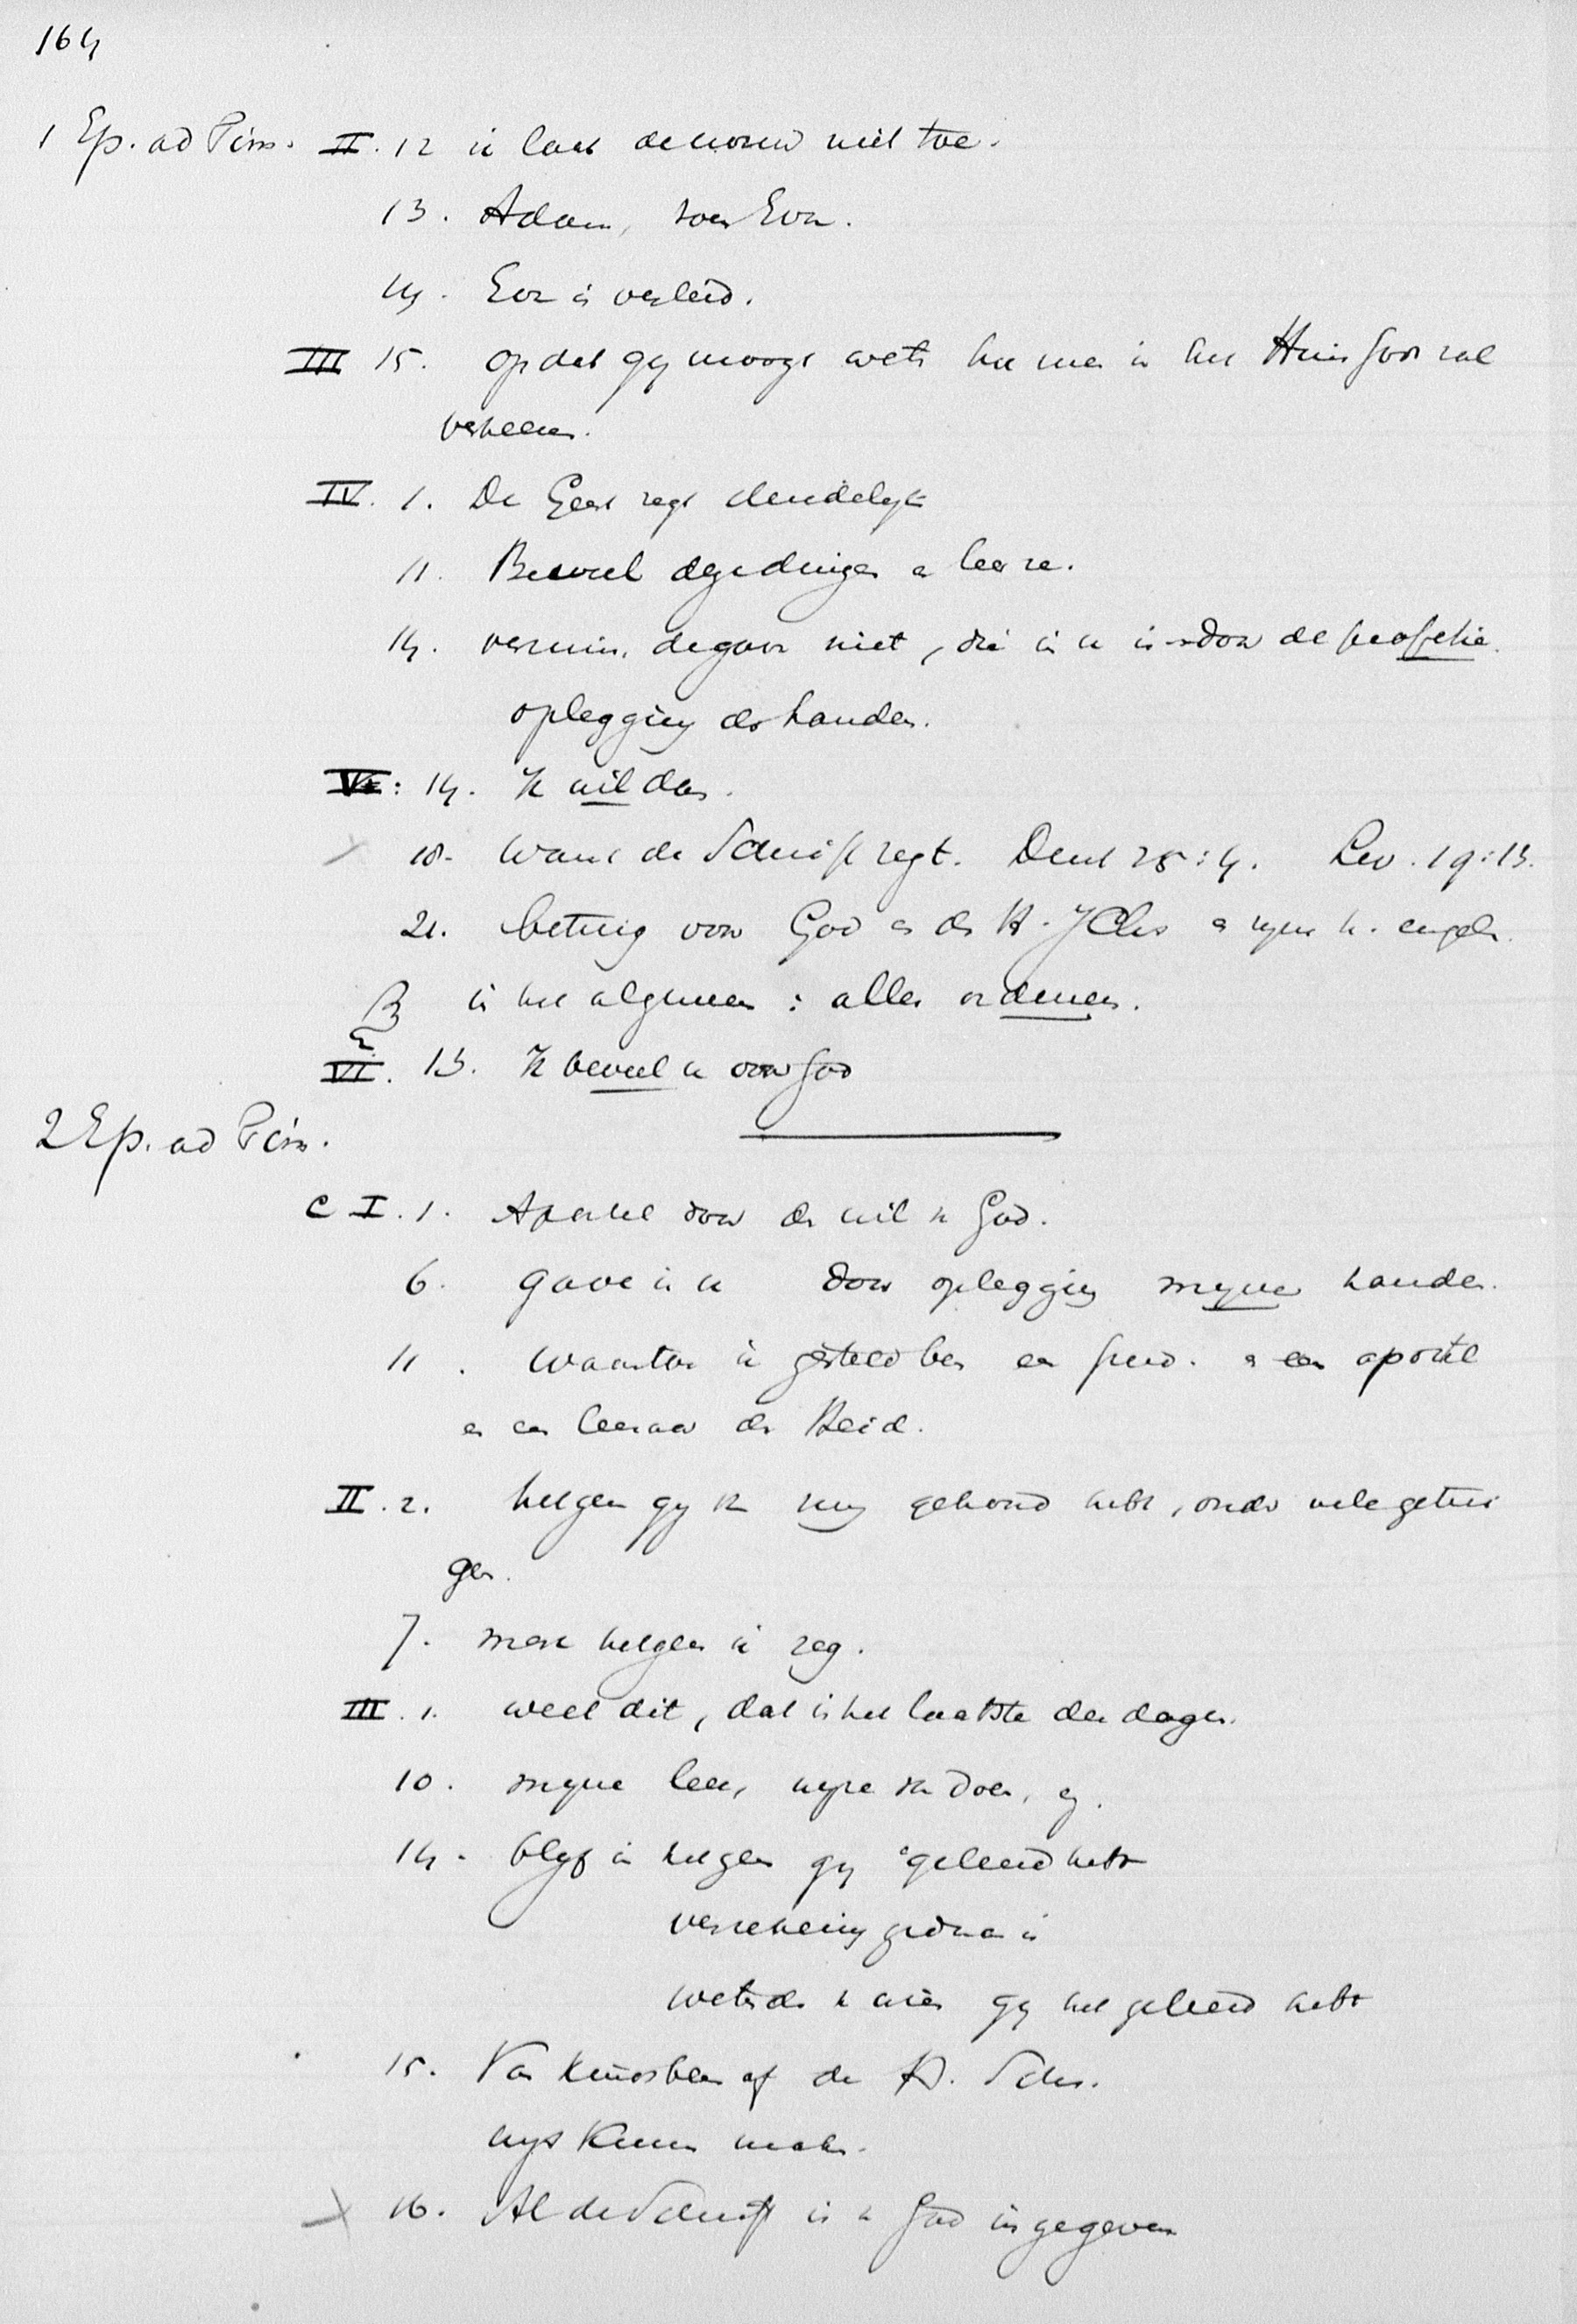 164
1 Ep. ad Tim. II. 12 ik laat de vrouw niet toe.
13. Adam, toen Eva.
14. Eva is verleid.
III 15. opdat gy moogt weten hoe men in het Huis Gods zal
verkeeren.
IV. 1. De Geest zegt duidelyk
11. Beveel deze dingen en leere.
14. verzuim de gave niet, die in u is door de profetie
oplegging der handen.
V: 14. Ik wil dan.
18. Want de Schrift zegt. Deut 25:4. Lev. 19:13.
21. betuig voor God en den H. JChs en zyne h. engelen.
B in het algemeen: alles ordenen.
VI. 13. Ik beveel u voor God
2 Ep. ad Tim.
C I. 1. Apostel door den wil v God.
6. gave in u door oplegging myner handen.
11. Waartoe ik gesteld ben een pred. en een apostel
en een leeraar der Heid.
II. 2. hetgeen gy v my gehoord hebt, onder vele getui
gen.
7. merk hetgeen ik zeg.
III. 1. weet dit, dat in het laatste der dagen.
10. myne leer, wyze van doen,
14. blyf in hetgeen gy geleerd hebt
verzekering gedaan is
wetende v wien gy het geleerd hebt
15. Van kindsbeen af de H. Schr.
wys kunnen maken.
16. Al de Schrift is v God ingegeven